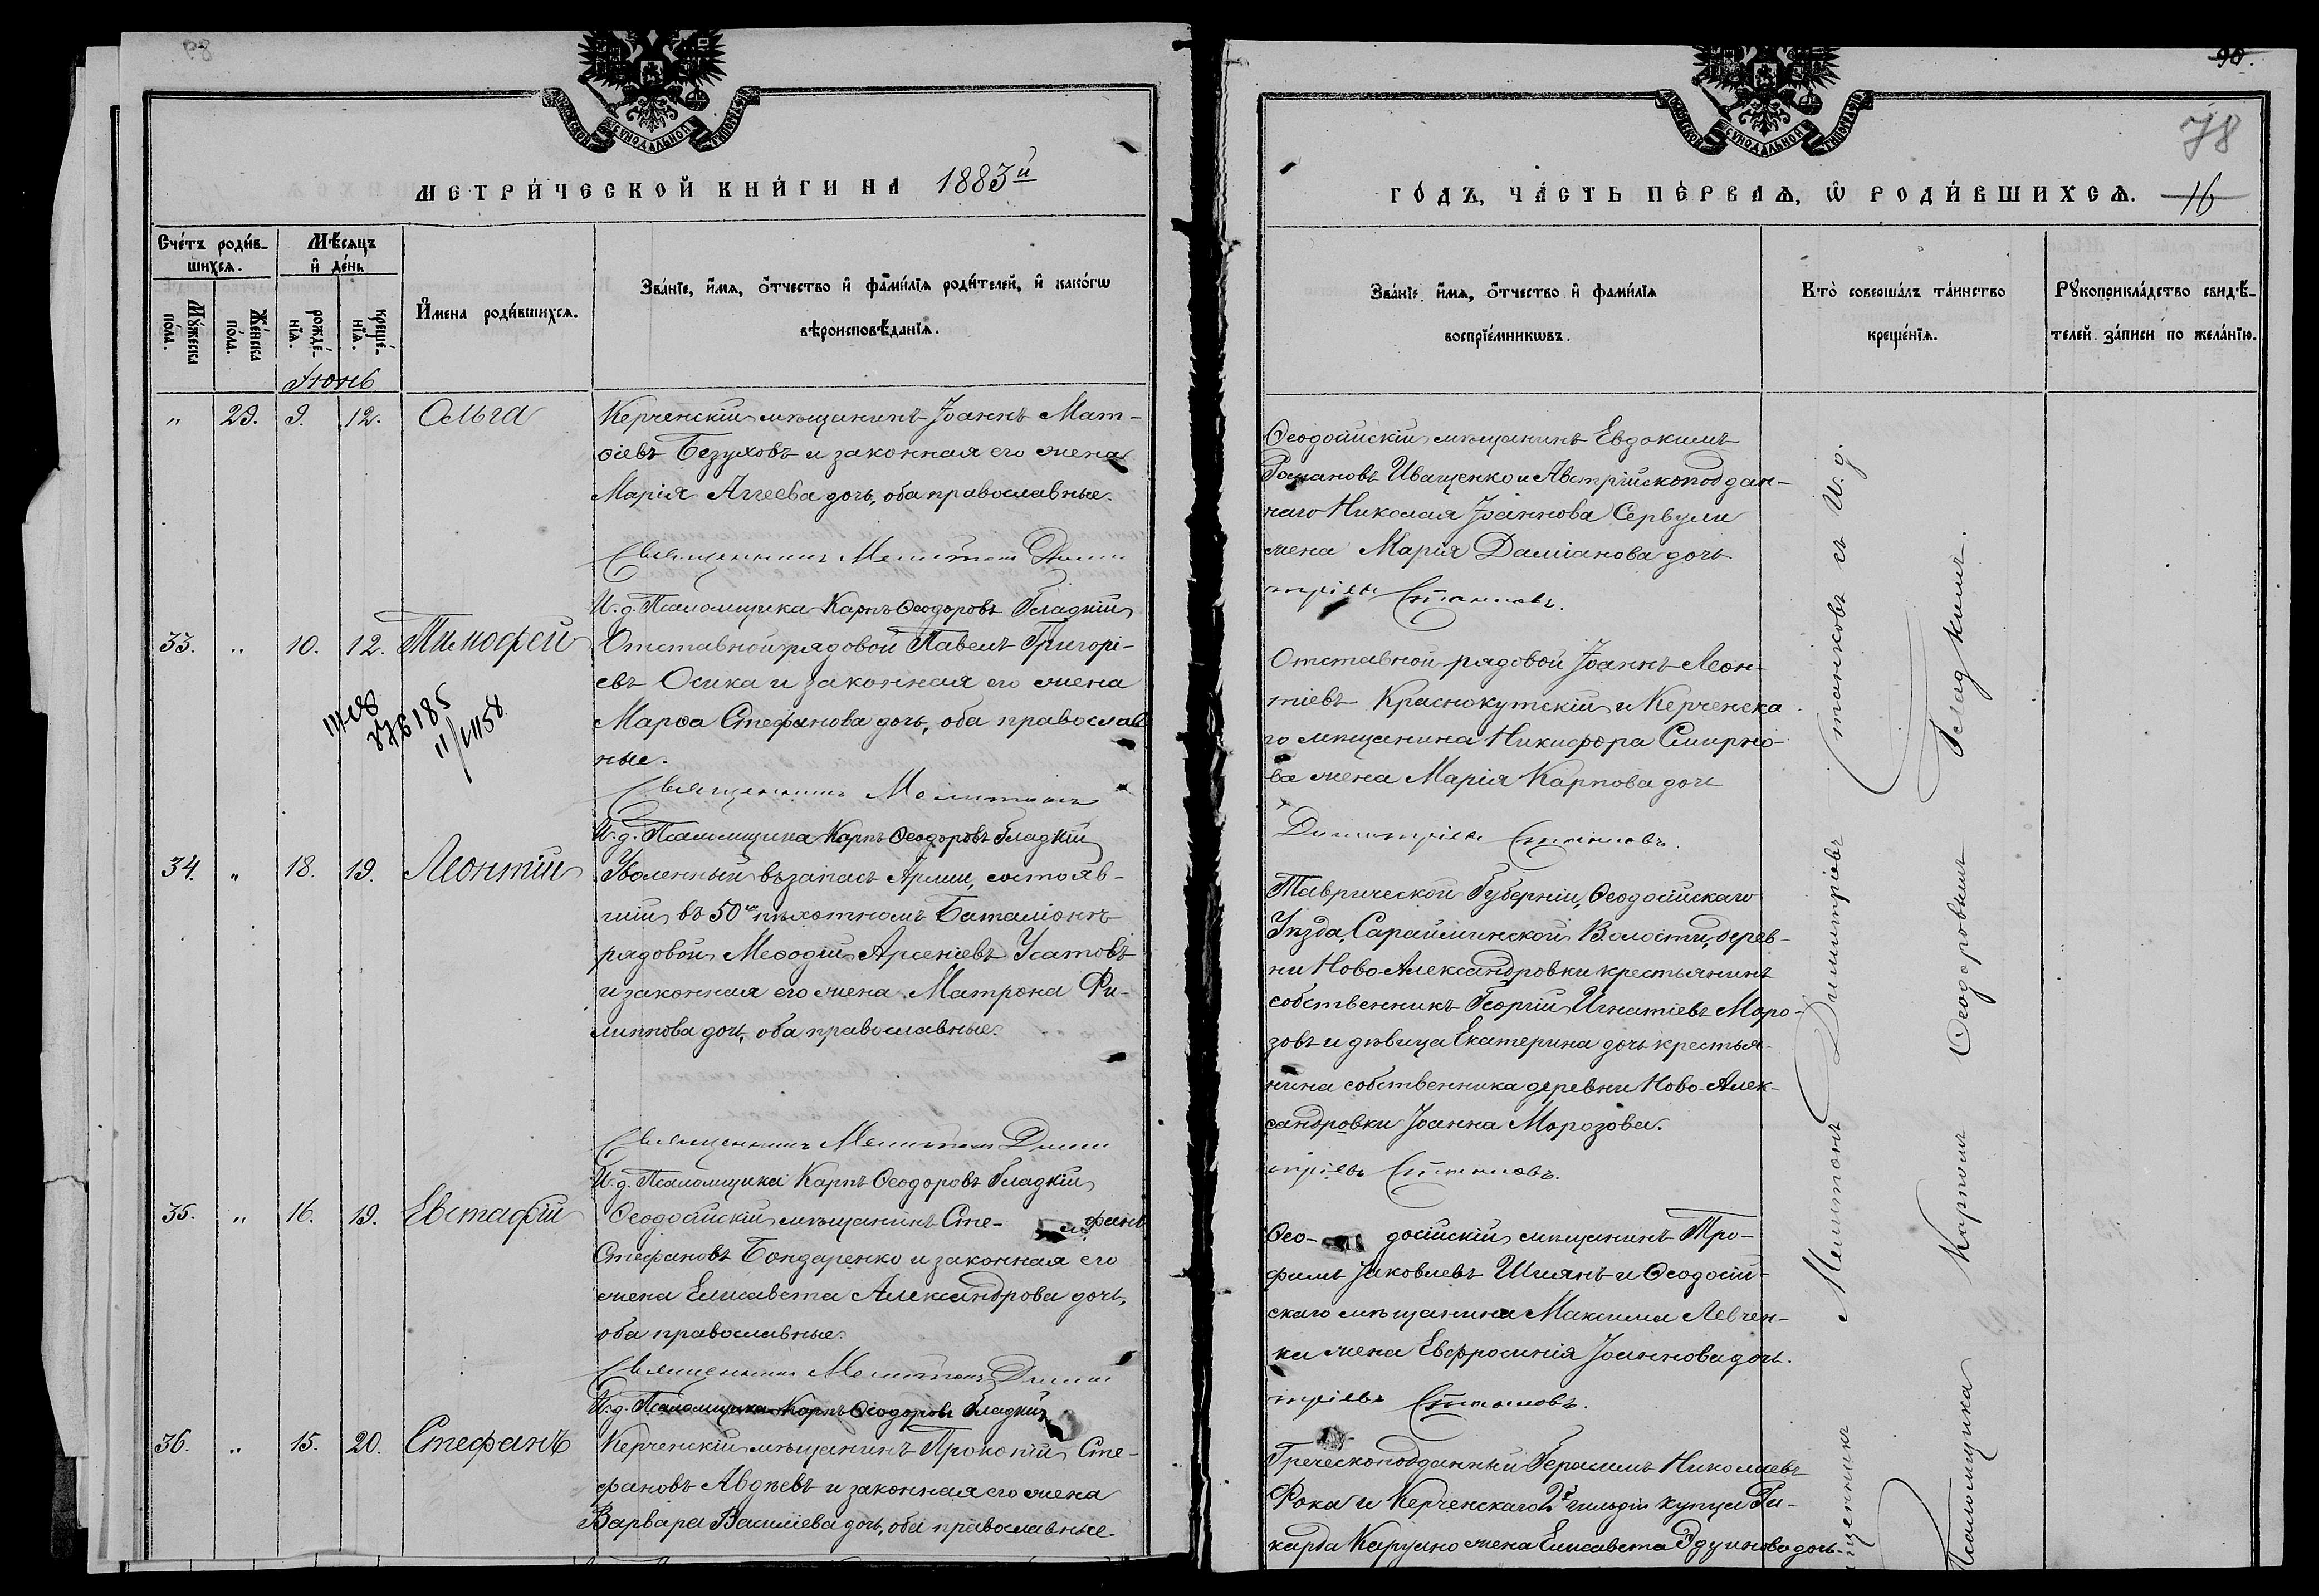 МОСКОВСКОЙ СѴНОДАЛЬНОЙ ТИПОГРАФІИ
МЕТРИ́ЧЕСКОЙ КНИ́ГИ НА 1883й
Сче́тъ роди́вшихсѧ.
Мѣ́сѧцъ и҆ де́нь
Мꙋ́жеска по́ла.
Же́нска по́ла.
рожде́нїѧ.
креще́нїѧ.
И҆́мена роди́вшихсѧ.
Зва́нїе, и҆́мѧ, ѻ҆́тчество и҆ фами́лїѧ роди́телей, и҆ како́гѡ
вѣроисповѣ́данїѧ.
Іюнь
" 29. 9. 12. Ольга
Керченскій мѣщанинъ Іоаннъ Мат-
ѳіевъ Безуховъ и законная его жена
Марія Аггеева дочь, оба православные.
Священникъ Мелитонъ Дими
И. д. Псаломщика Карпъ Ѳеодоровъ Гладкій
33. " 10. 12. Тимофей
Отставной рядовой Павелъ Григорі-
евъ Осика и законная его жена
Марѳа Стефанова дочь, оба православ
ные.
Священникъ Мелитонъ
И. д. Псаломщика Карпъ Ѳеодоровъ Гладкій
34. " 18. 19. Леонтій
Уволенный въ запасъ Арміи, состояв-
шій въ 50мъ пѣхотномъ Баталіонѣ
рядовой Меѳодій Арсеніевъ Усатовъ
и законная его жена Матрона Фи-
липпова дочь, оба православные.
Священникъ Мелитонъ Дими
И. д. Псаломщика Карпъ Ѳеодоровъ Гладкій
35. " 16. 19. Евстафій
Ѳеодосійскій мѣщанинъ Сте- фанъ
Стефановъ Бондаренко и законная его
жена Елисавета Александрова дочь,
оба православные.
Священникъ Мелитонъ Дими
И. д. Псаломщика Карпъ Ѳеодоровъ Гладкій
36. " 15. 20. Стефанъ
Керченскій мѣщанинъ Прокопій Сте-
фановъ Авдѣевъ и законная его жена
Варвара Василіева дочь, оба православные.
90.
78
МОСКОВСКОЙ СѴНОДАЛЬНОЙ ТИПОГРАФІИ
ГО́ДЪ, ЧА́СТЬ ПЕ́РВАѦ, Ѡ҆ РОДИ́ВШИХСѦ. 16
Зва́нїе, и҆́мѧ, ѻ҆́тчество и҆ фами́лїѧ
воспрїе́мникѡвъ.
Кто̀ соверша́лъ та́инство
креще́нїѧ.
Рꙋкоприкла́дство свидѣ́-
телей за́писи по жела́нїю.
Ѳеодосійскій мѣщанинъ Евдокимъ
Романовъ Иващенко и Австрійскоподдан-
наго Николая Іоаннова Сервули
жена Марія Даміанова дочь.
тріевъ Станковъ.
Отставной рядовой Іоаннъ Леон-
тіевъ Краснокутскій и Керченска
го мѣщанина Никифора Смирно-
ва жена Марія Карпова дочь
Димитріевъ Станковъ.
Таврической Губерніи, Ѳеодосійскаго
Уѣзда, Сарайминской Волости, дерев-
ни Ново-Александровки крестьянинъ
собственникъ Георгій Игнатіевъ Моро-
зовъ и дѣвица Екатерина дочь крестья-
нина собственника деревни Ново-Алек-
сандровки Іоанна Морозова.
тріевъ Станковъ.
Ѳео- досійскій мѣщанинъ Тро-
фимъ Іаковлевъ Шиянъ и Ѳеодосій-
скаго мѣщанина Максима Левчен-
ка жена Евфросинія Іоаннова дочь.
тріевъ Станковъ.
Греческоподданный Герасимъ Николаевъ
Фока и Керченскаго 2й гильдіи купца Ри-
карда Каруано жена Елисавета Эдуинова дочь.
щенникъ Мелитонъ Димитріевъ Станковъ съ И. д.
Псаломщика Карпомъ Ѳеодоровымъ Гладкимъ.